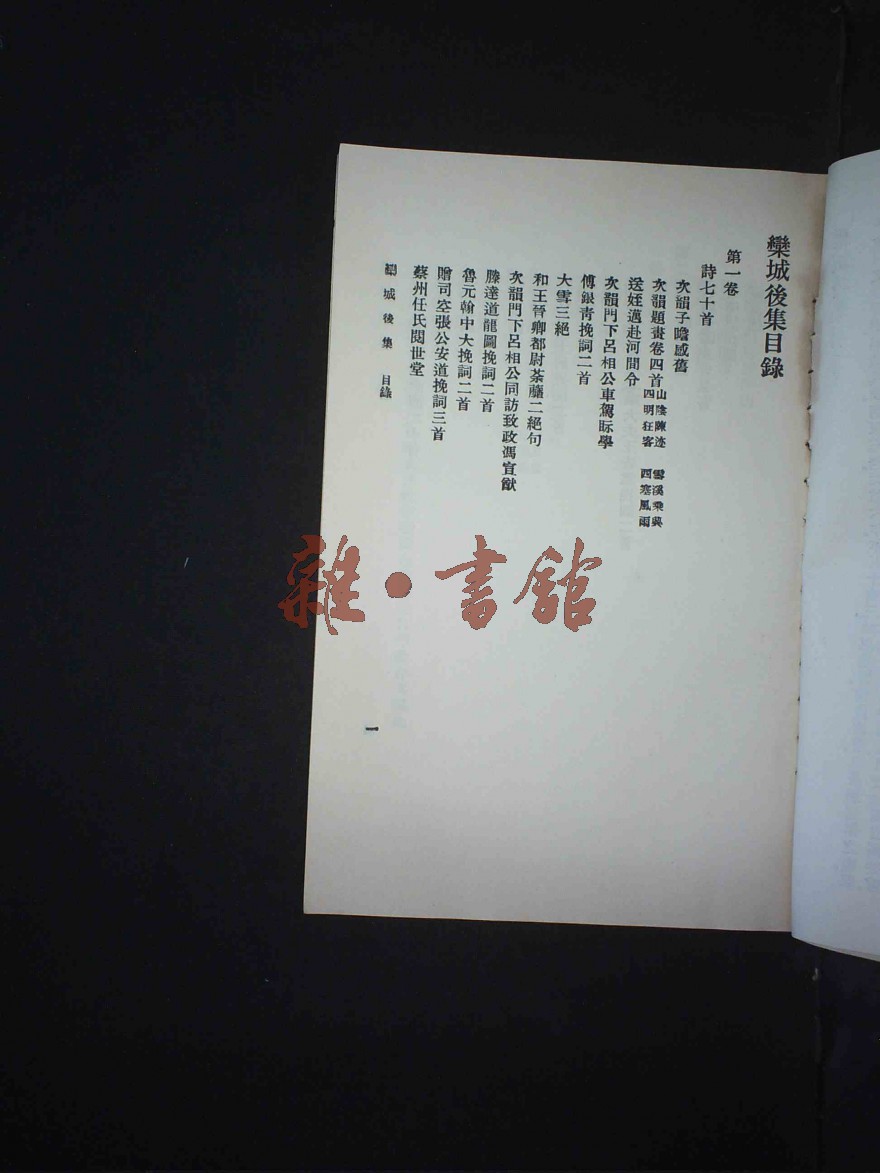 欒城後集目錄
第一卷
詩七十首
次韻子瞻感舊
次韻題畫卷四首山陰陳迹 雪溪乘興 四明狂客 西塞風雨
送姪邁赴河間令
次韻門下呂相公車駕眎學
傅銀青挽詞二首
大雪三絕
和王晉卿都尉荼䕷二絕句
次韻門下呂相公同訪致政馮宣猷
滕達道龍圖挽詞二首
魯元翰中大挽詞二首
贈司空張公安道挽詞三首
蔡州任氏閱世堂
欒城後集 目錄
一
雜·書館